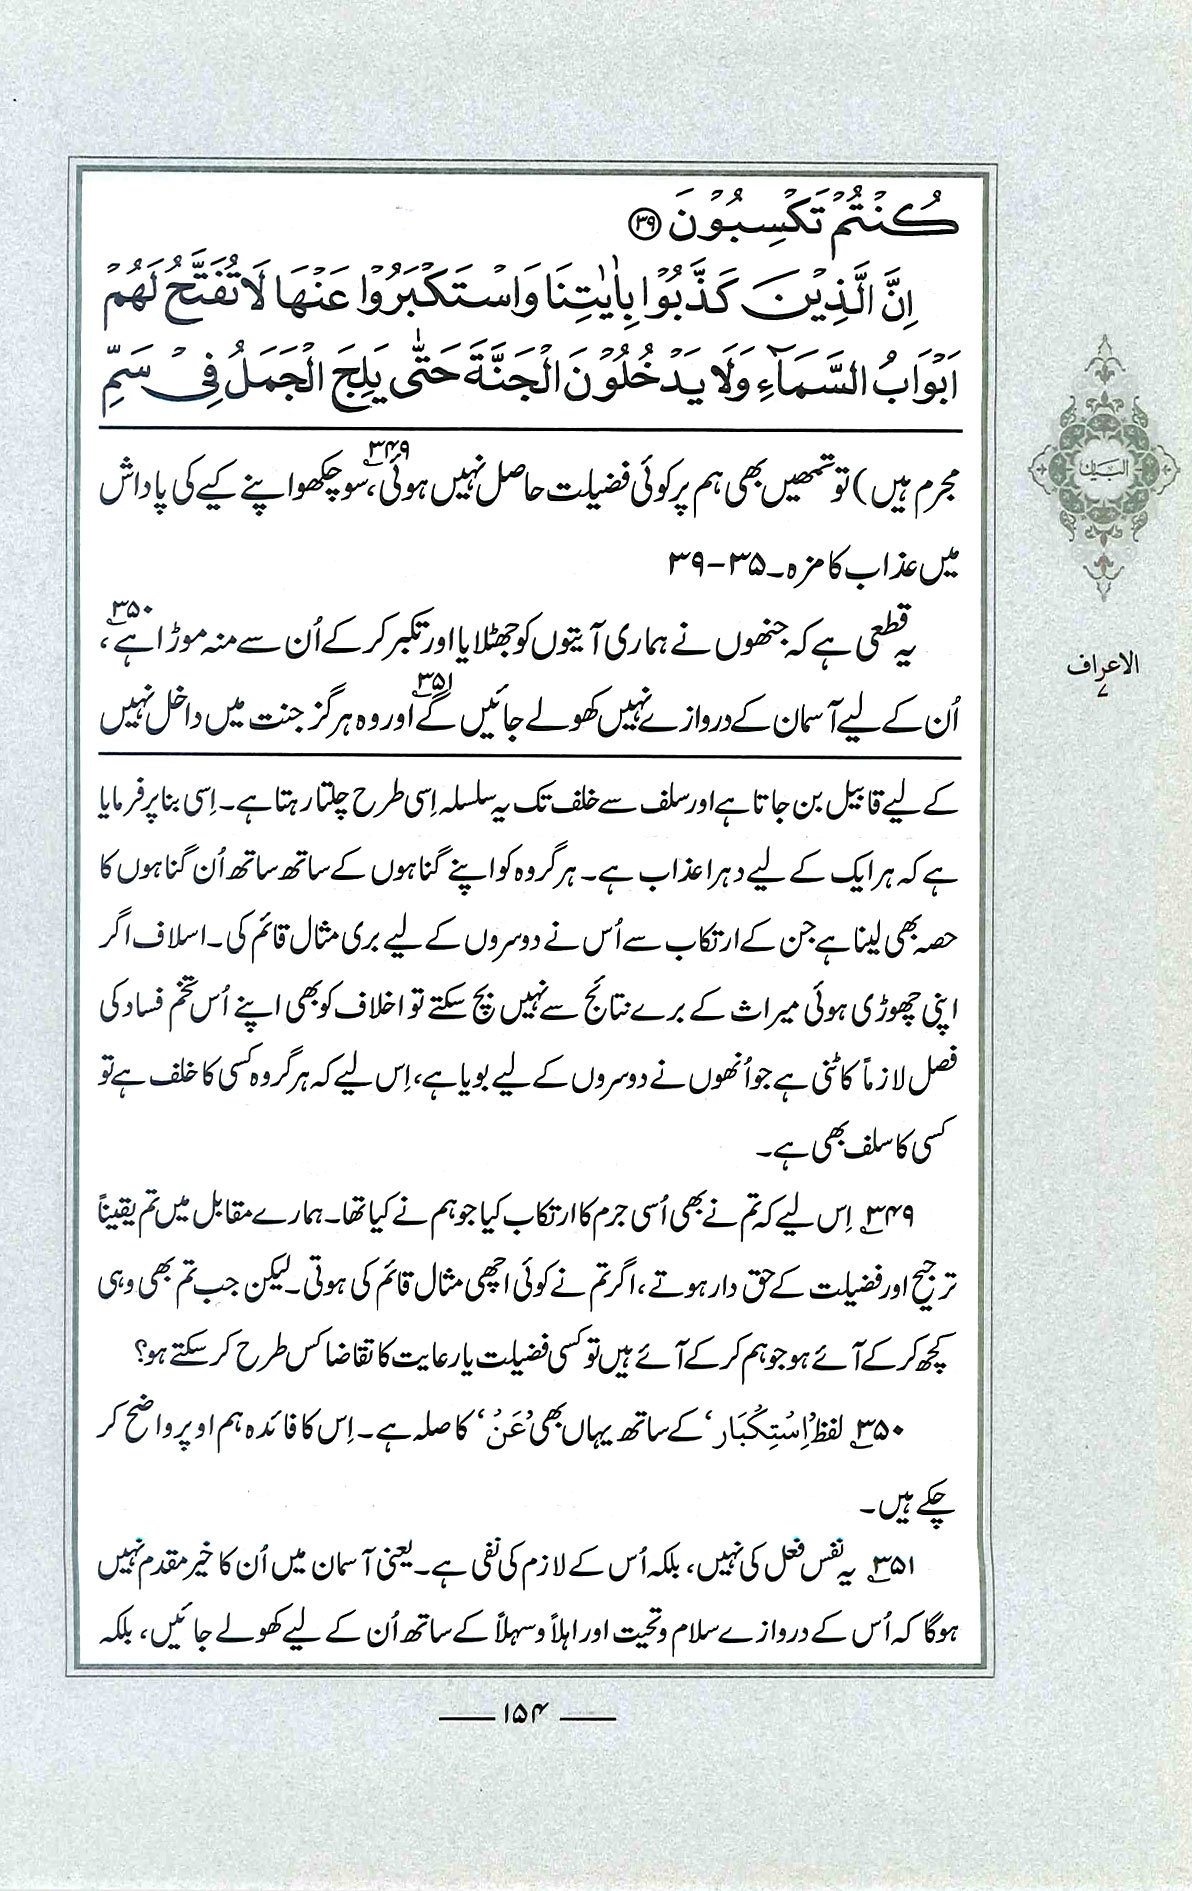 كُنْتُمْ تَكْسِبُوْنَ ﴿۳۹﴾
اِنَّ الَّذِيْنَ كَذَّبُوْا بِاٰيٰتِنَا وَاسْتَكْبَرُوْا عَنْهَا لَا تُفَتَّحُ لَهُمْ
اَبْوَابُ السَّمَآءِ وَلَا يَدْخُلُوْنَ الْجَنَّةَ حَتّٰى يَلِجَ الْجَمَلُ فِيْ سَمِّ
مجرم ہیں) تو تمھیں بھی ہم پر کوئی فضیلت حاصل نہیں ہوئی،۳۴۹ سو چکھو اپنے کیے کی پاداش
میں عذاب کا مزہ۔ ۳۵-۳۹
یہ قطعی ہے کہ جنھوں نے ہماری آیتوں کو جھٹلایا اور تکبر کرکے اُن سے منہ موڑا ہے،۳۵۰
اُن کے لیے آسمان کے دروازے نہیں کھولے جائیں گے۳۵۱ اور وہ ہرگز جنت میں داخل نہیں
کے لیے قابیل بن جاتا ہے اور سلف سے خلف تک یہ سلسلہ اِسی طرح چلتا رہتا ہے۔ اِسی بنا پر فرمایا
ہے کہ ہر ایک کے لیے دہرا عذاب ہے۔ ہر گروہ کو اپنے گناہوں کے ساتھ ساتھ اُن گناہوں کا
حصہ بھی لینا ہے جن کے ارتکاب سے اُس نے دوسروں کے لیے بری مثال قائم کی۔ اسلاف اگر
اپنی چھوڑی ہوئی میراث کے برے نتائج سے نہیں بچ سکتے تو اخلاف کو بھی اپنے اُس تخم فساد کی
فصل لازماً کاٹنی ہے جو اُنھوں نے دوسروں کے لیے بویا ہے، اِس لیے کہ ہر گروہ کسی کا خلف ہے تو
کسی کا سلف بھی ہے۔
۳۴۹ اِس لیے کہ تم نے بھی اُسی جرم کا ارتکاب کیا جو ہم نے کیا تھا۔ ہمارے مقابل میں تم یقیناً
ترجیح اور فضیلت کے حق دار ہوتے، اگر تم نے کوئی اچھی مثال قائم کی ہوتی۔ لیکن جب تم بھی وہی
کچھ کرکے آئے ہو جو ہم کرکے آئے ہیں تو کسی فضیلت یا رعایت کا تقاضا کس طرح کر سکتے ہو؟
۳۵۰ لفظ ’اِسْتِكْبَار‘ کے ساتھ یہاں بھی ’عَنْ‘ کا صلہ ہے۔ اِس کا فائدہ ہم اوپر واضح کر
چکے ہیں۔
۳۵۱ یہ نفس فعل کی نہیں، بلکہ اُس کے لازم کی نفی ہے۔ یعنی آسمان میں اُن کا خیر مقدم نہیں
ہوگا کہ اُس کے دروازے سلام و تحیت اور اہلاً و سہلاً کے ساتھ اُن کے لیے کھولے جائیں، بلکہ
البیان
الاعراف
۷
۱۵۴